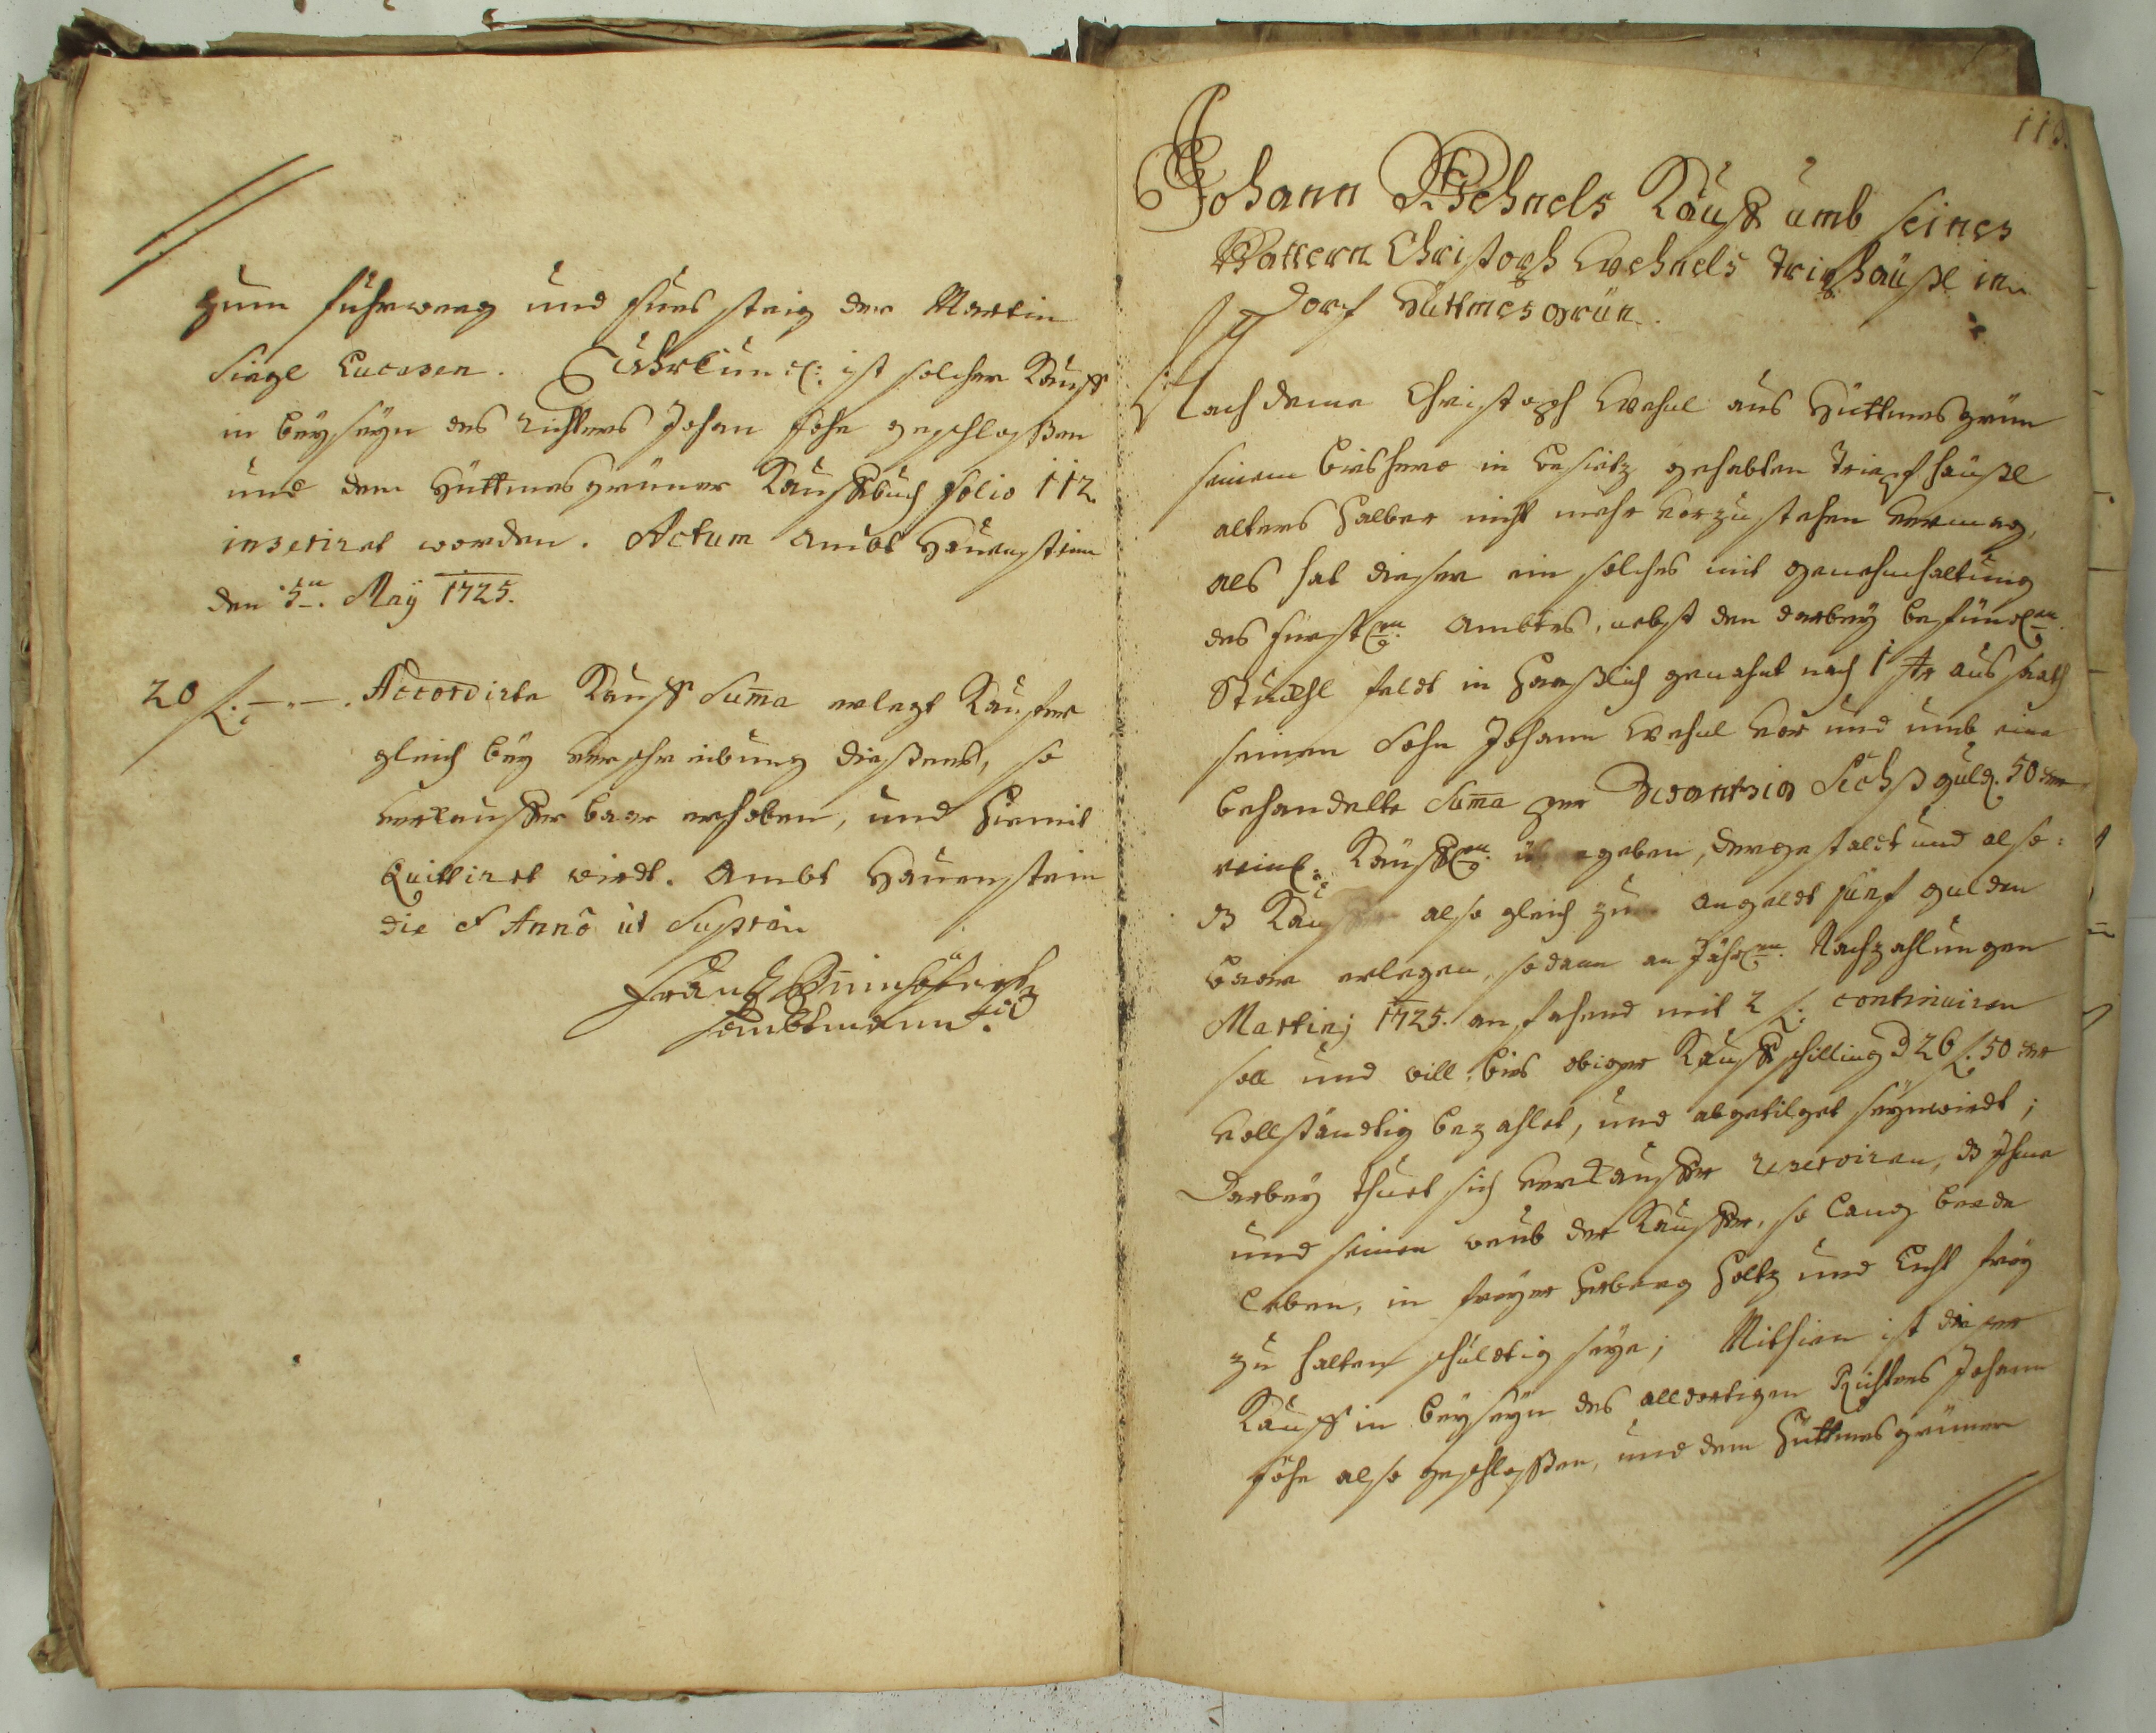 zum fuhrweeg und fues steig der Martin
Siegl Lucasen. Uhrkundl: ist solcher Kauff
in beyseyn des Richters Johan Föhe geschlossen
und dem Hüttmesgrüner Kauffbuch folio 112.
inseriret worden. Actum Ambt Hauenstein
den 5ten. May 1725.
20 f: — " — . Accordirte Kauff Suma erlegt Kauffer
gleich bey verschreibung dießens, so
verkauffer baar erhoben, und hiemit
Quittiret wirdt. Ambt Hauenstein
die et Anno ut Supra
Haubtmann
Johann Wehnels Kauff umb seines
Vattern Christoph Wehnels Tripfhäußl in
Dorf Hüttmesgrün.
Nachdeme Christoph Wehnl aus Hüttmesgrün
seinem bishero in besietz gehabten Tripfhäußl
alters halber nicht mehr vorzustehen vermag,
als hat dieser ein solches mit genehmhaltung
des fürstlen. Ambtes, nebst den darbey befindlen.
Stückhl feldt in genahnt nach 1 Str aussaath
seinem Sohn Johann Wehnl vor und umb eine
behandelte Suma per Zwantzig Sechs guld. 50 xr
reinl: Käufflen. übergeben, dergestaldt und also:
dz Kauffer also gleich zum angeldt fünf gulden
baar erlegen, sodann an Jährlen. Nachzahlungen
Martinj 1725. anfahend mit 2 f: continuiren
soll und will, bies obiger Kauffschilling d 26 f. 50 xr
vollständig bezahlet, und abgetilget seyn wirdt;
Darbey thuet sich verkauffer reserviren, dz Ihme
und seinen weib der Kauffer, so lang beede
leben, in freyer herberg holtz und licht frey
zu halten schuldig seye; Mithien ist dieser
Kauff in beyseyn des alldortigen Richters Johann
Föhe also geschlossen, und dem Hüttmesgrüner